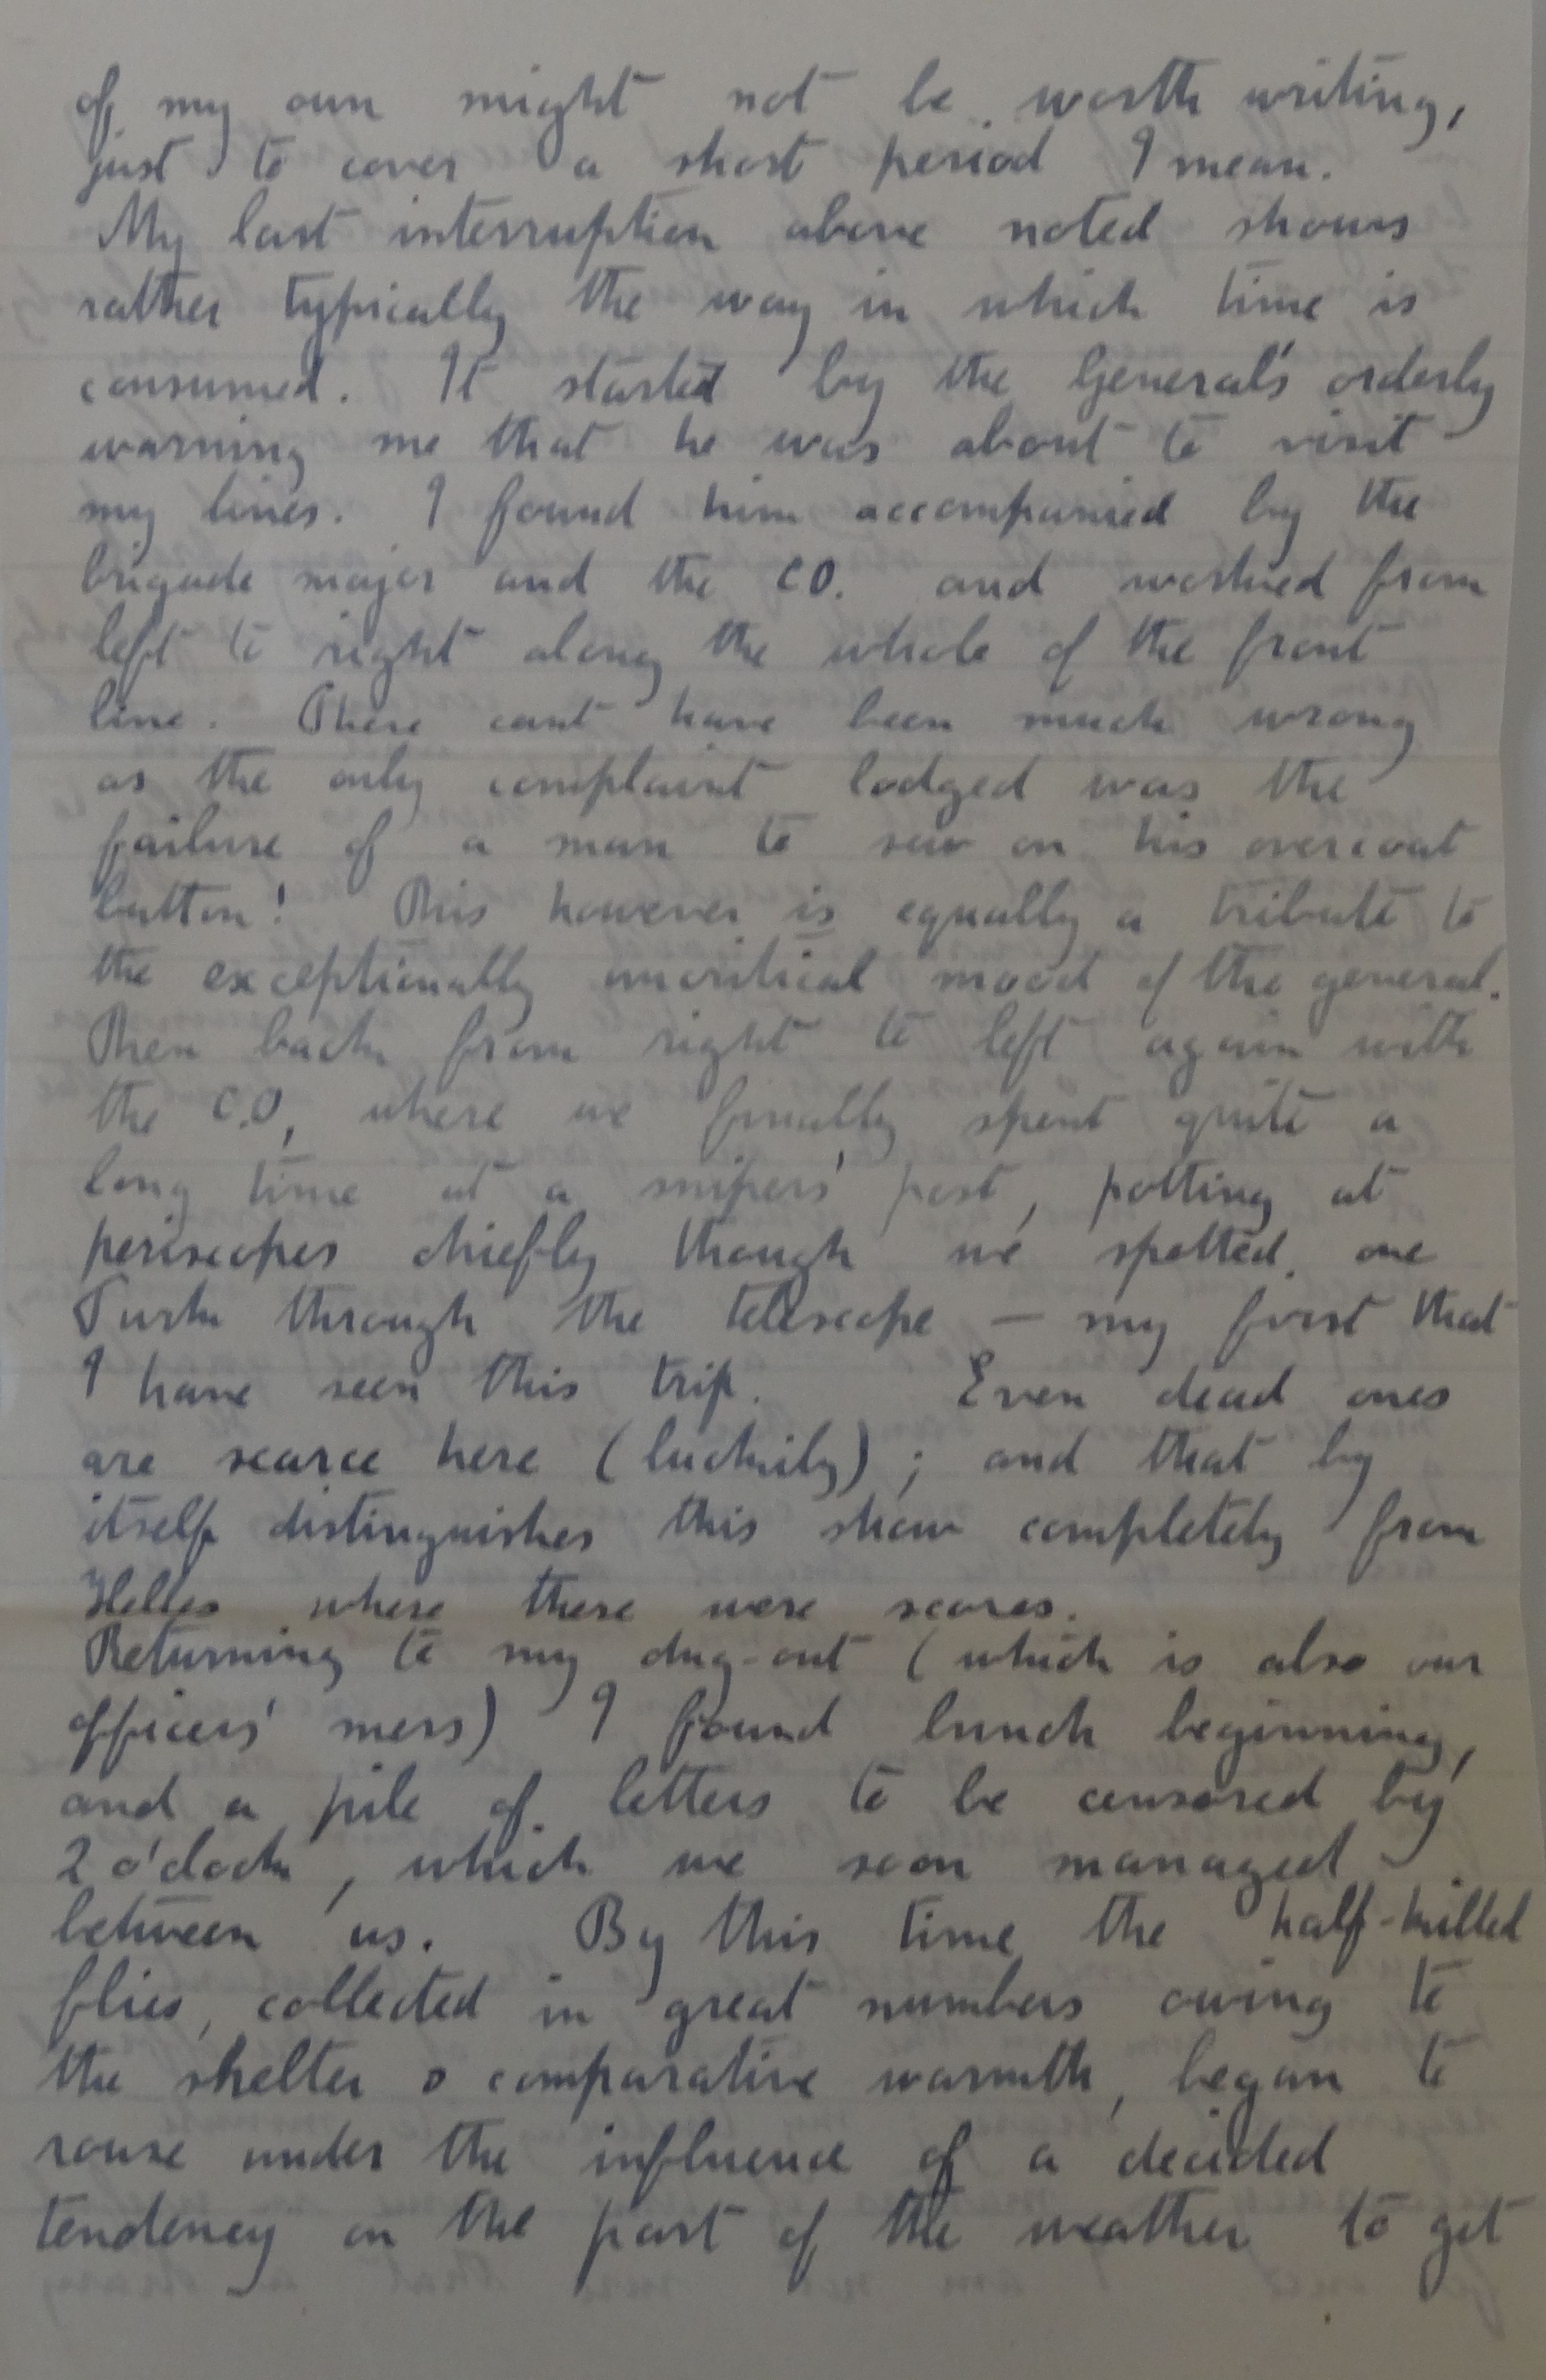 of my own might not be worth writing,
just to cover a short period I mean.
My last interruption above noted shows
rather typically the way in which time is
consumed. It started by the General's orderly
warning me that he was about to visit
my lines. I found him accompanied by the
brigade major and the CO. and worked from
left to right along the whole of the front
line. There cant have been much wrong
as the only complaint lodged was the
failure of a man to sew on his overcoat
button! This however is equally a tribute to
the exceptionally uncritical mood of the general.
Then back from right to left again with
the C.O, where we finally spent quite a
long time at a snipers' post, potting at
periscopes chiefly though we spotted one
Turk through the telescope — my first that
I have seen this trip. Even dead ones
are scarce here (luckily); and that by
itself distinguishes this show completely from
Helles where there were scores.
Returning to my dug-out (which is also our
officers' mess) I found lunch beginning,
and a pile of letters to be censored by
2 o'clock, which we soon managed
between us. By this time the half-killed
flies, collected in great numbers owing to
the shelter & comparative warmth, began to
rouse under the influence of a decided
tendency on the part of the weather to get